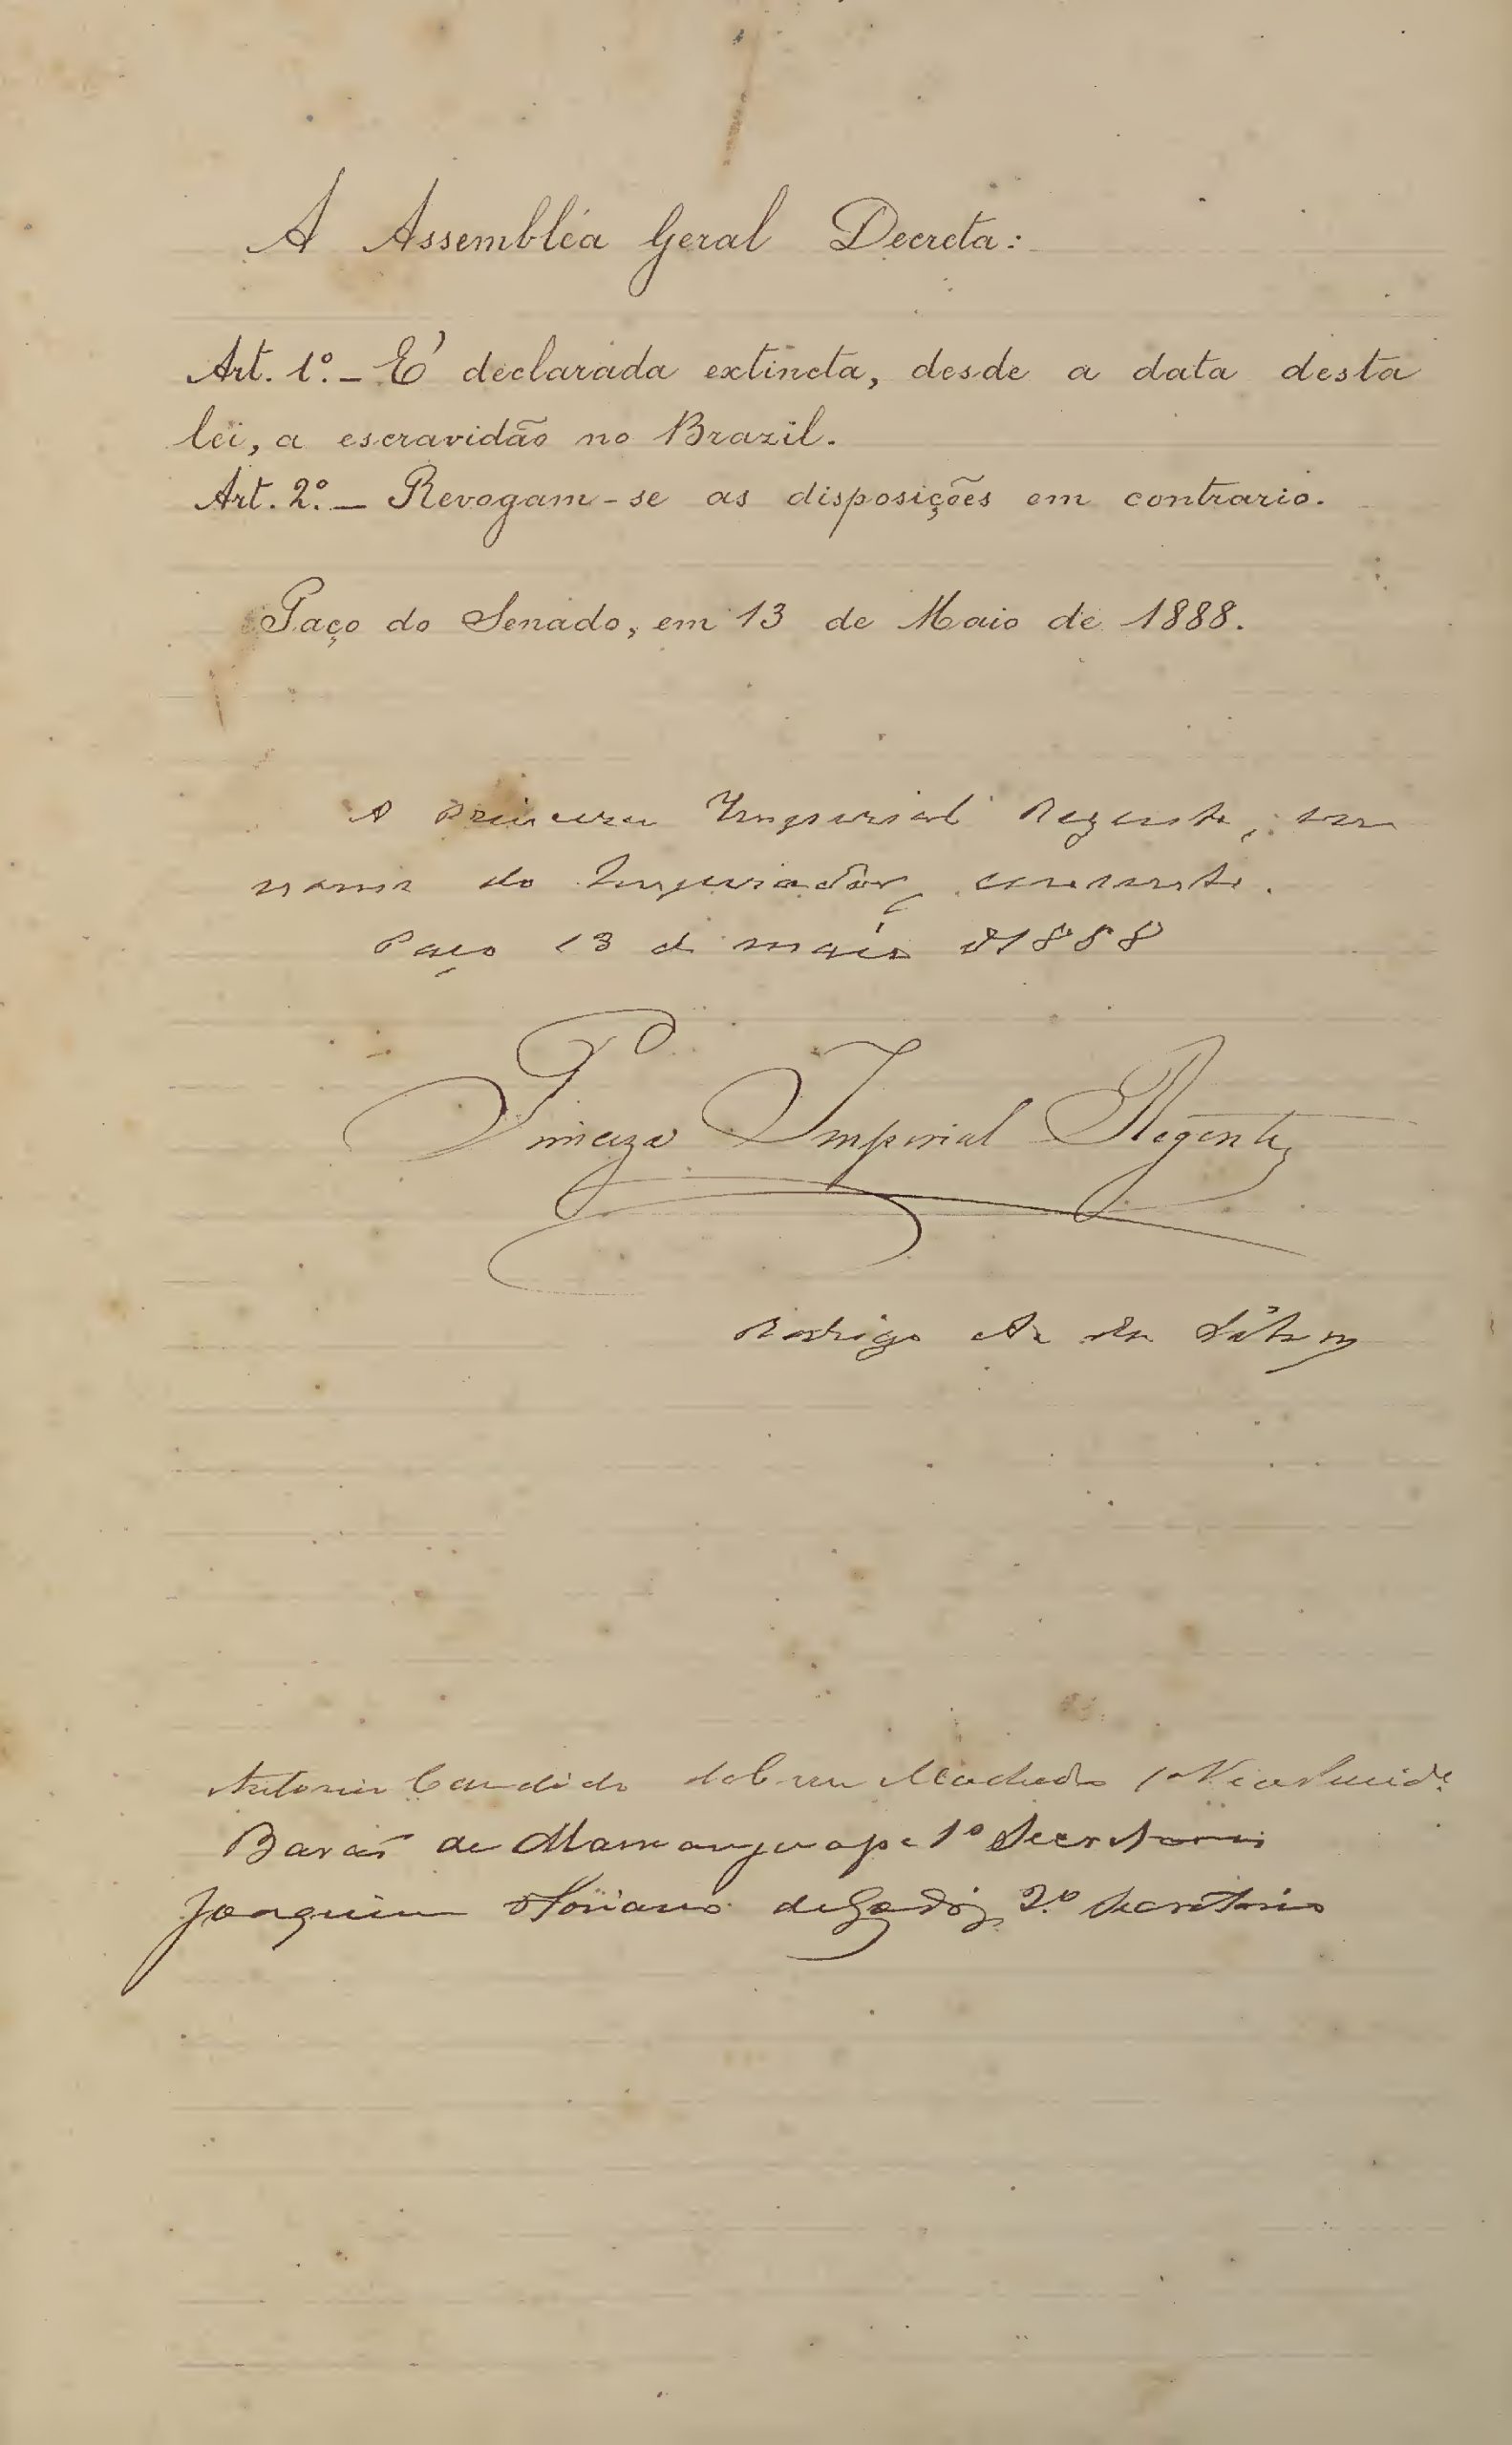 A Assembléa Geral Decreta:
Art. 1º. — É declarada extincta, desde a data desta
lei, a escravidão no Brazil.
Art. 2º. — Revogam-se as disposições em contrario.
Paço do Senado, em 13 de Maio de 1888.
A Princeza Imperial Regente, em
nome do Imperador, consente.
Paço 13 de maio de 1888
Princeza Imperial Regente
Rodrigo A. da Silva
Antonio Candido da Cruz Machado 1º Vice Presidte
Barão de Mamanguape 1º Secretario
Joaquim Floriano de Godoy, 2º Secretario